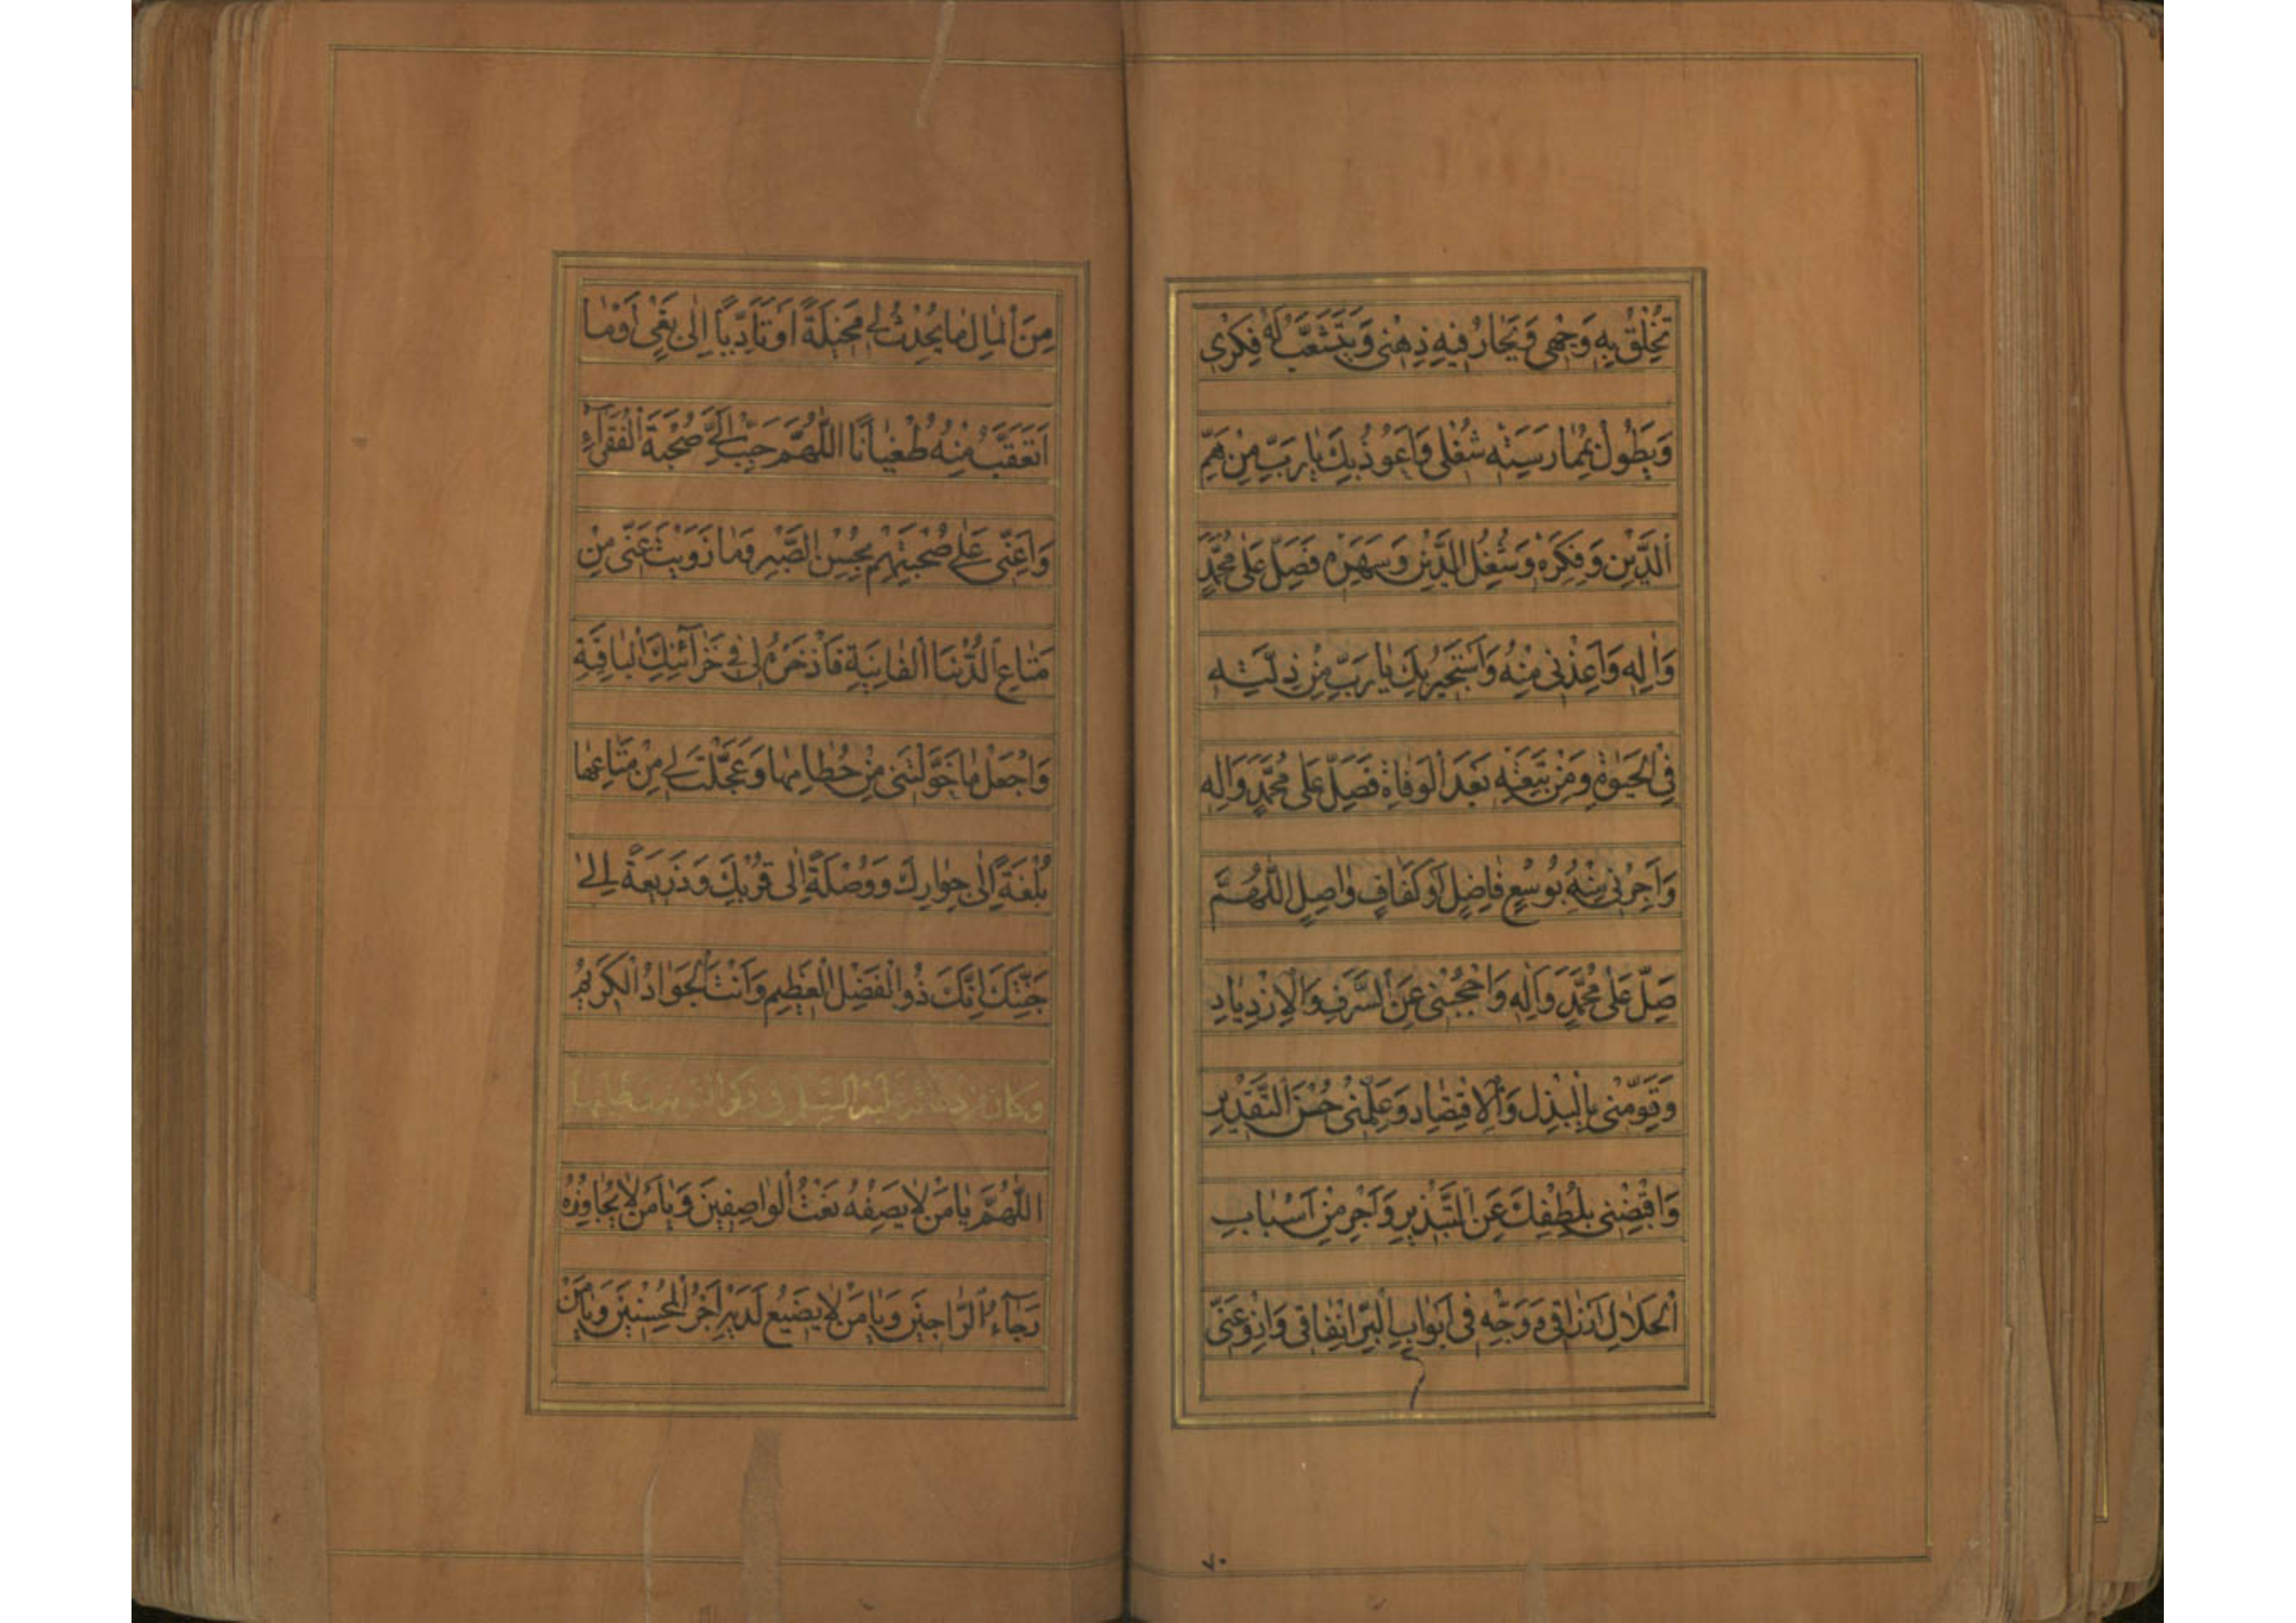 تُخْلِقُ بِهِ وَجْهِی وَیَحَارُ فِیهِ ذِهْنِی وَیَتَشَعَّبُ لَهُ فِکْرِی
وَیَطُولُ بِمُمٰارَسَتِهِ شُغْلِی وَاَعُوذُ بِكَ یٰا رَبِّ مِنْ هَمِّ
اَلدَّیْنِ وَفِکْرِهٖ وَشُغْلِ الدَّیْنِ وَسَهَرِهٖ فَصَلِّ عَلٰی مُحَمَّدٍ
وَاٰلِهِ وَاَعِذْنِی مِنْهُ وَاَسْتَجِیرُ بِكَ یٰا رَبِّ مِنْ ذِلَّتِهِ
فِی الْحَیٰوةِ وَمِنْ تَبِعَتِهِ بَعْدَ الْوَفٰاةِ فَصَلِّ عَلٰی مُحَمَّدٍ وَاٰلِهِ
وَاَجِرْنِی مِنْهُ بِوُسْعٍ فٰاضِلٍ اَوْ کَفَافٍ وٰاصِلٍ اَللّٰهُمَّ
صَلِّ عَلٰی مُحَمَّدٍ وَاٰلِهِ وَاحْجُبْنِی عَنِ السَّرَفِ وَالْاِزْدِیٰادِ
وَقَوِّمْنِی بِالْبَذْلِ وَالْاِقْتِصٰادِ وَعَلِّمْنِی حُسْنَ التَّقْدِیرِ
وَاقْبِضْنِی بِلُطْفِكَ عَنِ التَّبْذِیرِ وَاَجْرِ مِنْ اَسْبٰابِ
الْحَلٰالِ اَرْزٰاقِی وَوَجِّهْ فِی اَبْوٰابِ الْبِرِّ اِنْفٰاقِی وَازْوِ عَنِّی
۷۰
مِنَ الْمٰالِ مٰا یُحْدِثُ لِی مَخِیلَةً اَوْ تَاَدِّیاً اِلٰی بَغْیٍ اَوْ مٰا
اَتَعَقَّبُ مِنْهُ طُغْیٰانًا اَللّٰهُمَّ حَبِّبْ اِلَیَّ صُحْبَةَ الْفُقَرَآءِ
وَاَعِنِّی عَلٰی صُحْبَتِهِمْ بِحُسْنِ الصَّبْرِ وَمٰا زَوَیْتَ عَنِّی مِنْ
مَتٰاعِ الدُّنْیَا الْفٰانِیَةِ فَاذْخَرْهُ لِی فِی خَزٰآئِنِكَ الْبٰاقِیَةِ
وَاجْعَلْ مٰا خَوَّلْتَنِی مِنْ حُطٰامِهٰا وَعَجَّلْتَ لِی مِنْ مَتٰاعِهٰا
بُلْغَةً اِلٰی جِوٰارِكَ وَوُصْلَةً اِلٰی قُرْبِكَ وَذَرِیعَةً اِلٰی
جَنَّتِكَ اِنَّكَ ذُو الْفَضْلِ الْعَظِیمِ وَاَنْتَ الْجَوٰادُ الْکَرِیمُ
وکان من دعائه علیه السلم فی ذکر التوبة وطلبها
اَللّٰهُمَّ یٰا مَنْ لٰا یَصِفُهُ نَعْتُ الْوٰاصِفِینَ وَیٰا مَنْ لٰا یُجٰاوِزُهُ
رَجٰآءُ الرّٰاجِینَ وَیٰا مَنْ لٰا یَضِیعُ لَدَیْهِ اَجْرُ الْمُحْسِنِینَ وَیٰا مَنْ